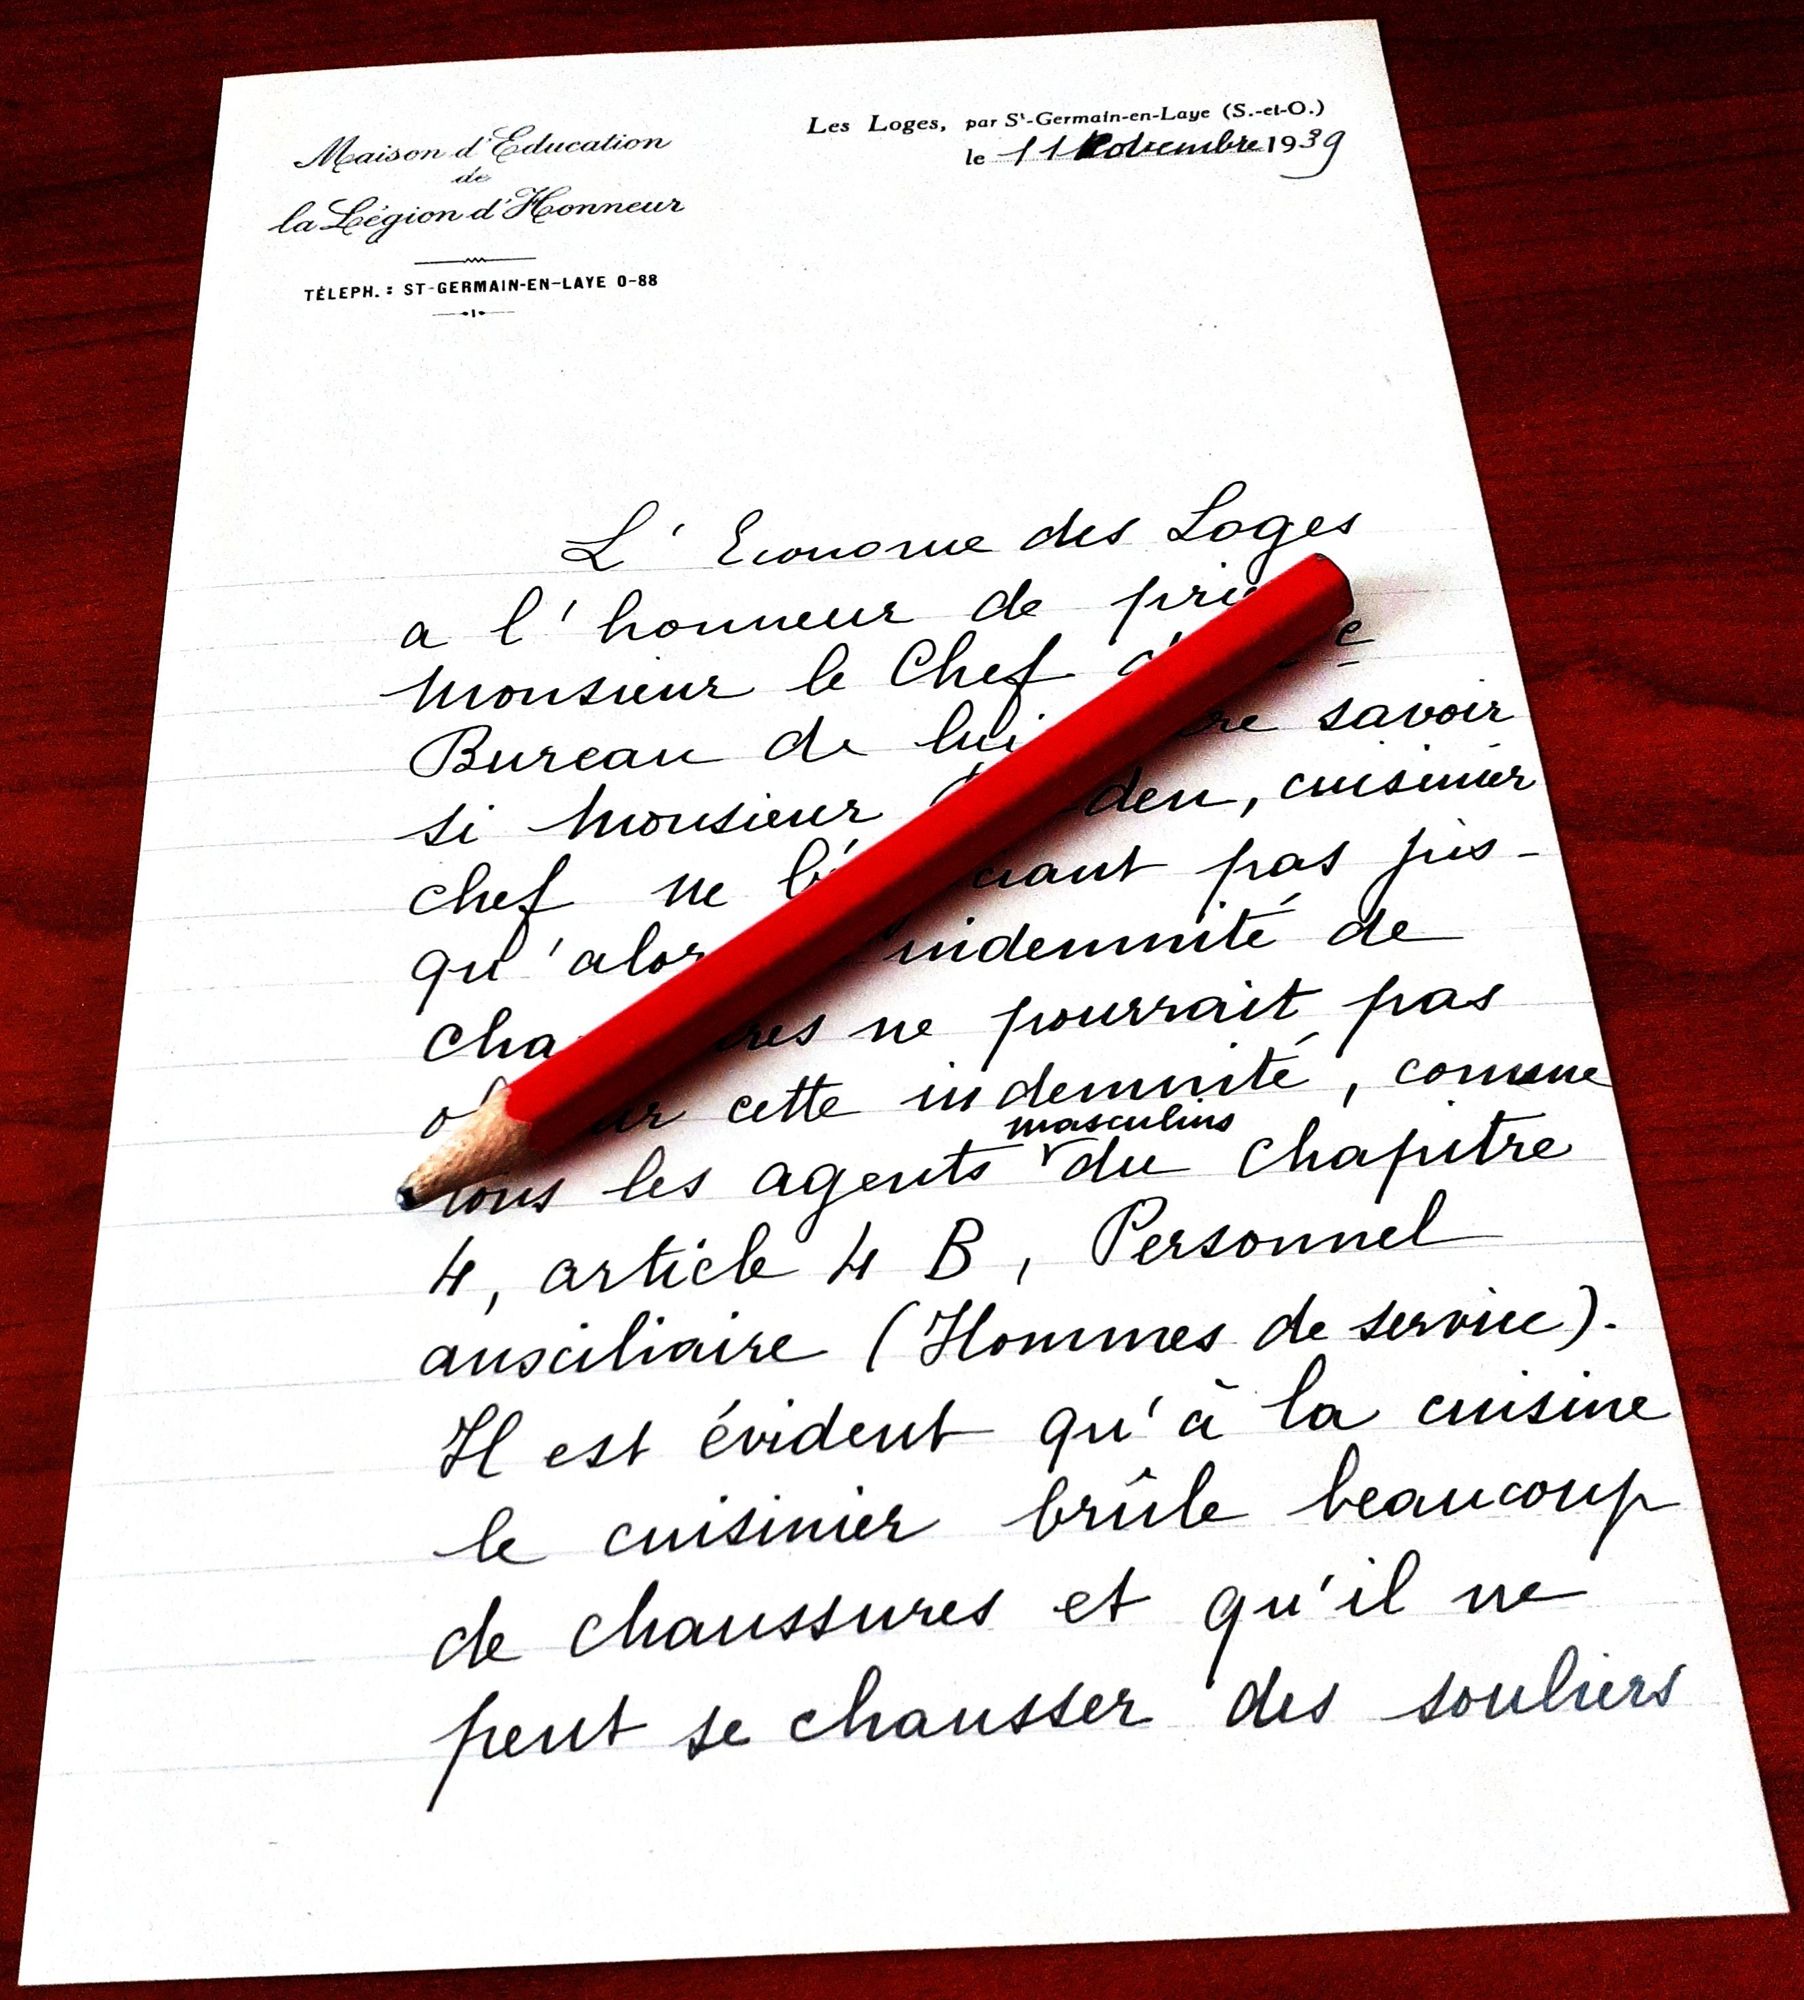 Maison d'Education
de
la Légion d'Honneur
TÉLEPH. : ST-GERMAIN-EN-LAYE 0-88
Les Loges, par St-Germain-en-Laye (S.-et-O.)
le 11 Novembre 1939
L'Econome des Loges
a l'honneur de
Monsieur le Chef
Bureau de lui savoir
si Monsieur , cuisinier
chef ne pas jus-
qu'alors indemnité de
ne pourrait pas
cette indemnité, comme
masculins
tous les agents du chapitre
4, article 4 B, Personnel
auxiliaire (Hommes de service).
Il est évident qu'à la cuisine
le cuisinier brûle beaucoup
de chaussures et qu'il ne
peut se chausser des souliers